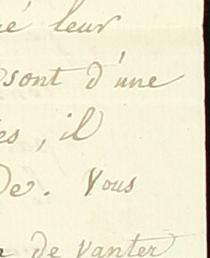 é leur
sont d'une
es, il
de. Vous
de vanter